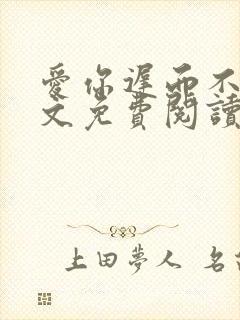 愛你遲而不
文免費閱讀
上田夢人 名